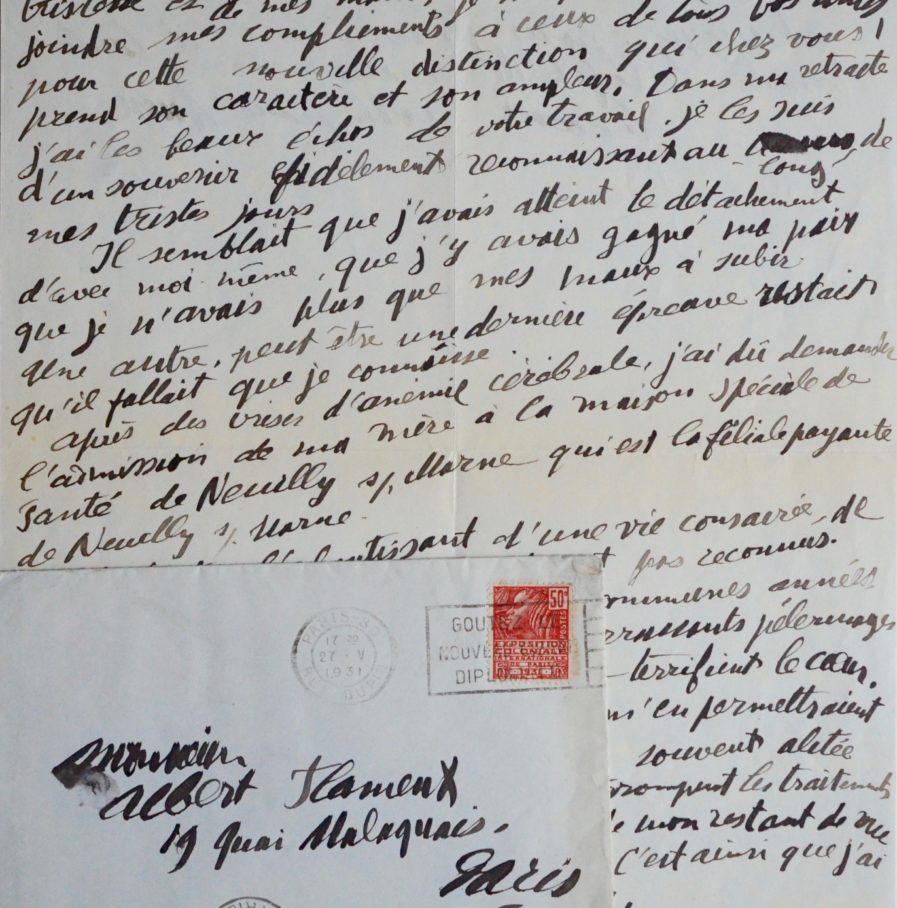 et de mes
joindre mes compliments à ceux de tous vos amis
pour cette nouvelle distinction qui chez vous
prend son caractère et son ampleur. Dans ma retraite
j'ai les beaux échos de votre travail. je les suis
d'un souvenir fidèlement reconnaissant au long de
mes tristes jours
Il semblait que j'avais atteint le détachement
d'avec moi même, que j'y avais gagné ma paix
que je n'avais plus que mes maux à subir
Une autre, peut être une dernière épreuve restait
qu'il fallait que je connaisse.
après des crises d'anémie cérébrale, j'ai dû demander
l'admission de ma mère à la maison spéciale de
santé de Neuilly s/ Marne qui est la filiale payante
de Neuilly s/ Marne.
l'aboutissant d'une vie consacrée, de
pas reconnus.
communes années
pélerinages
terrifient le cœur.
m'en permettraient
souvent alitée
les traitements
mon restant de vie
C'est ainsi que j'ai
PARIS
17
27 - V
1931
GOUTEZ LA
NOUVELLE
DIPL
50c
POSTES
EXPOSITION
COLONIALE
INTERNATIONALE
PARIS 1931
Monsieur
Albert Flament
19 Quai Malaquais.
Paris